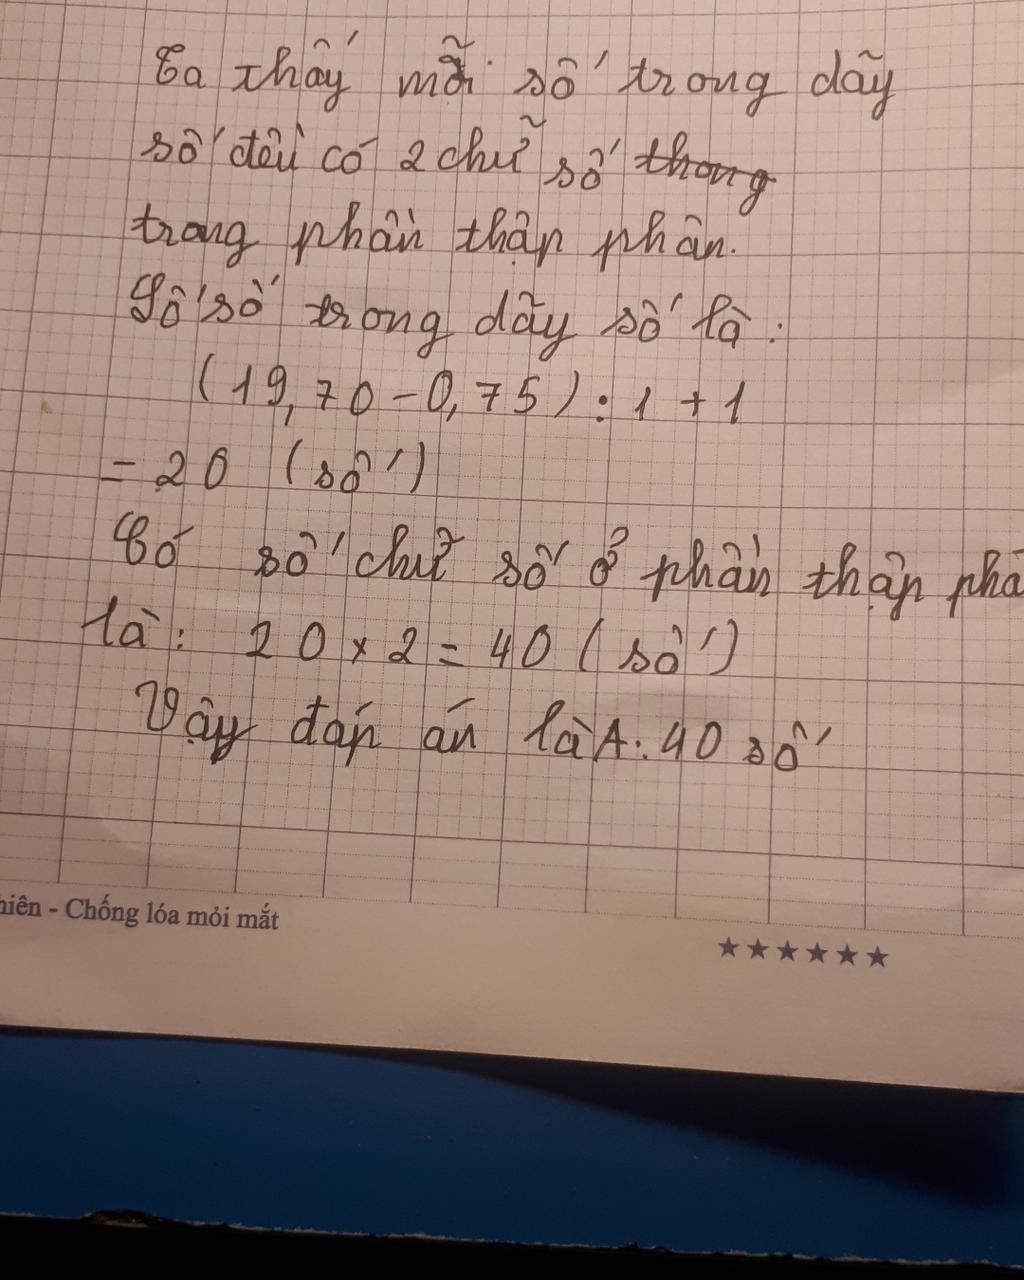 Ta thấy mỗi số trong dãy
số đều có 2 chữ số thong
trong phần thập phân.
Số số trong dãy số là:
(19,70 - 0,75) : 1 + 1
= 20 (số)
Có số chữ số ở phần thập phâ
là: 20 x 2 = 40 (số)
Vậy đáp án là A: 40 số
hiên - Chống lóa mỏi mắt
★★★★★★